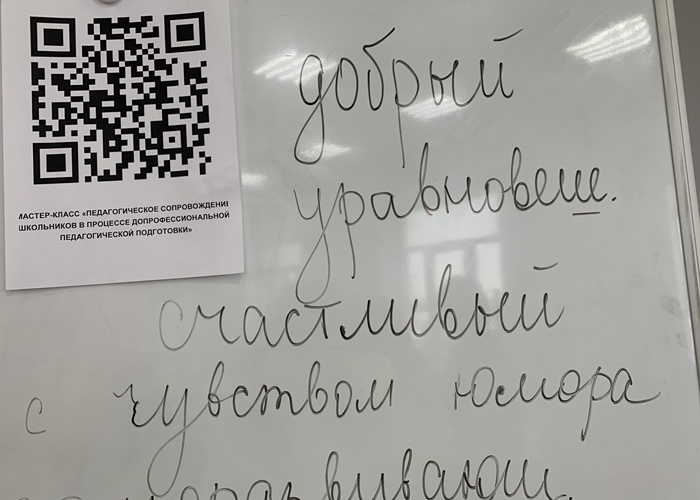 МАСТЕР-КЛАСС «ПЕДАГОГИЧЕСКОЕ СОПРОВОЖДЕНИЕ
ШКОЛЬНИКОВ В ПРОЦЕССЕ ДОПРОФЕССИОНАЛЬНОЙ
ПЕДАГОГИЧЕСКОЙ ПОДГОТОВКИ»
добрый
уравновеш.
счастливый
с чувством юмора